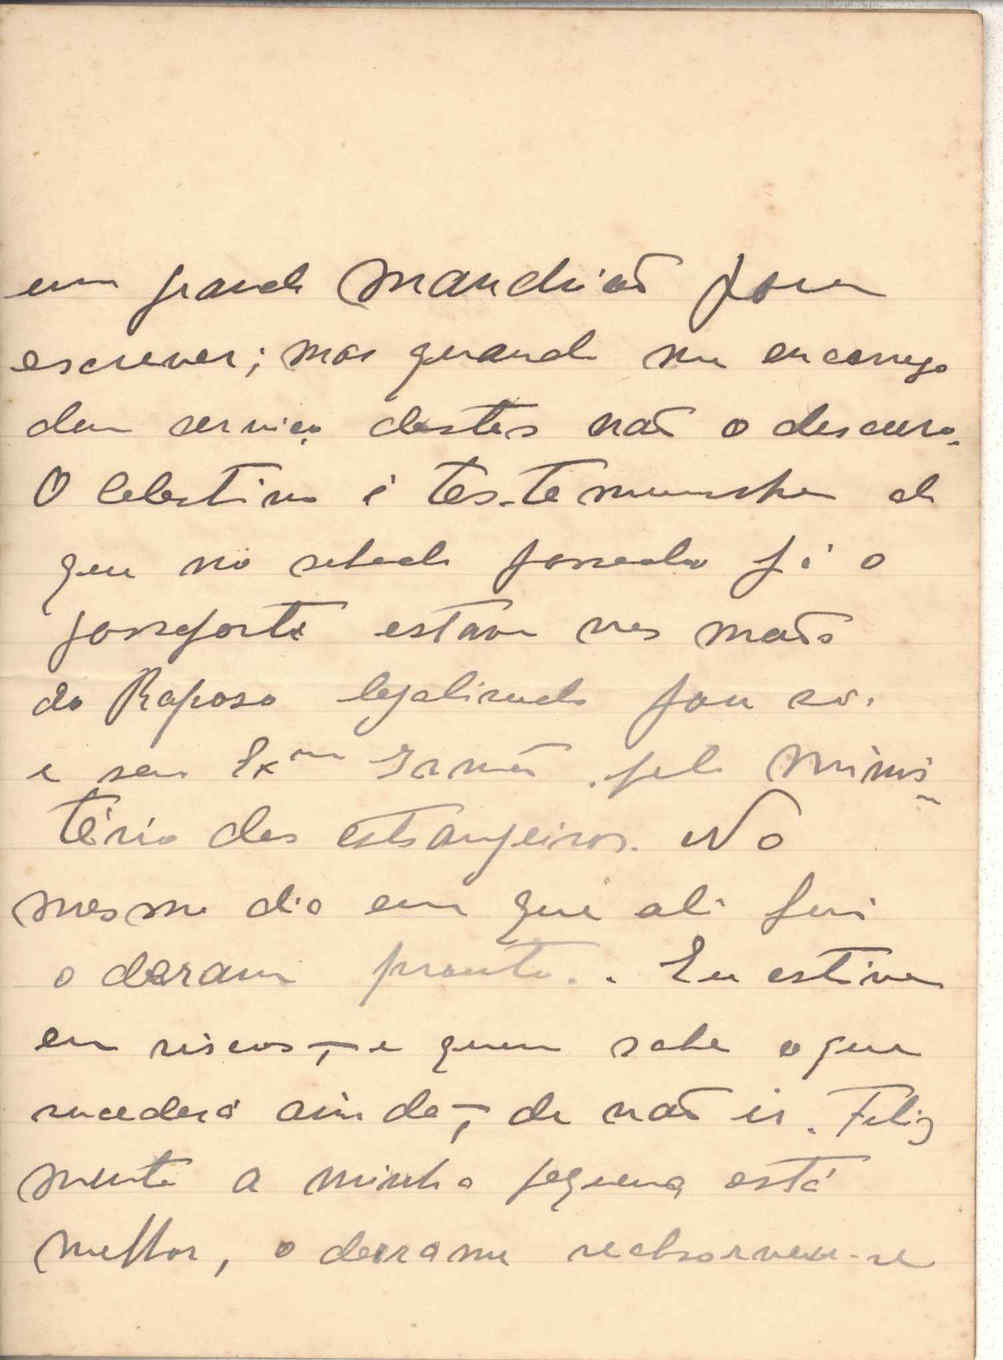 um grande mandrião para
escrever; mas quando me encarrego
dum serviço destes não o descuro.
O Celestino é tes-temunha de
que no sabado passado já o
passaporte estava nas mãos
do Raposo legalisado para si
e seu Exmo Irmão pelo Minis-
tério dos estrangeiros. No
mesmo dia em que ali fui
o deram pronto. Eu estive
em riscos, — e quem sabe o que
sucederá ainda —, de não ir. Feliz
mente a minha pequena está
melhor, o derrame reabsorveu-se